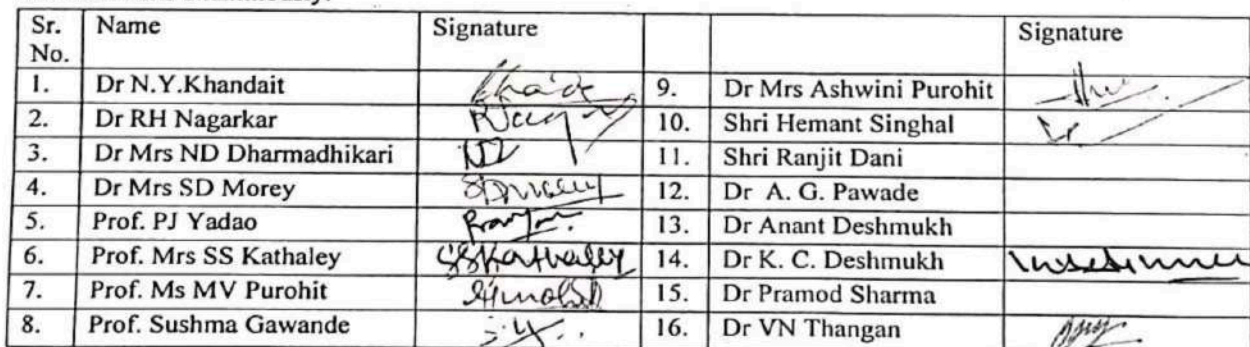 Sr. No. Name Signature Signature
1. Dr N.Y.Khandait 9. Dr Mrs Ashwini Purohit
2. Dr RH Nagarkar 10. Shri Hemant Singhal
3. Dr Mrs ND Dharmadhikari 11. Shri Ranjit Dani
4. Dr Mrs SD Morey 12. Dr A. G. Pawade
5. Prof. PJ Yadao 13. Dr Anant Deshmukh
6. Prof. Mrs SS Kathaley SSKathaley 14. Dr K. C. Deshmukh
7. Prof. Ms MV Purohit 15. Dr Pramod Sharma
8. Prof. Sushma Gawande 16. Dr VN Thangan